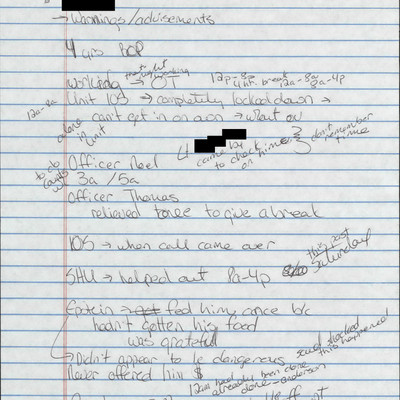 → Warnings/advisements
4 yrs BOP
Working → OT
12p-8a
4 hr. break 12a-8a
8a-4p
Unit 10S → completely locked down →
12a-8a
can't get in on own → went on
alone in Unit
4
came by to check him on
3
3
don't remember time
Officer Noel
to do counts w/
3a/5a
Officer Thomas
relieved to give a break
10S → when call came over
SHU → helped out 8a-4p
this past Saturday
Epstein → fed him once b/c
hadn't gotten his food
was grateful
→ Didn't appear to be dangerous
shocked this happened
Never offered him $
12am had already been done
done - anderson